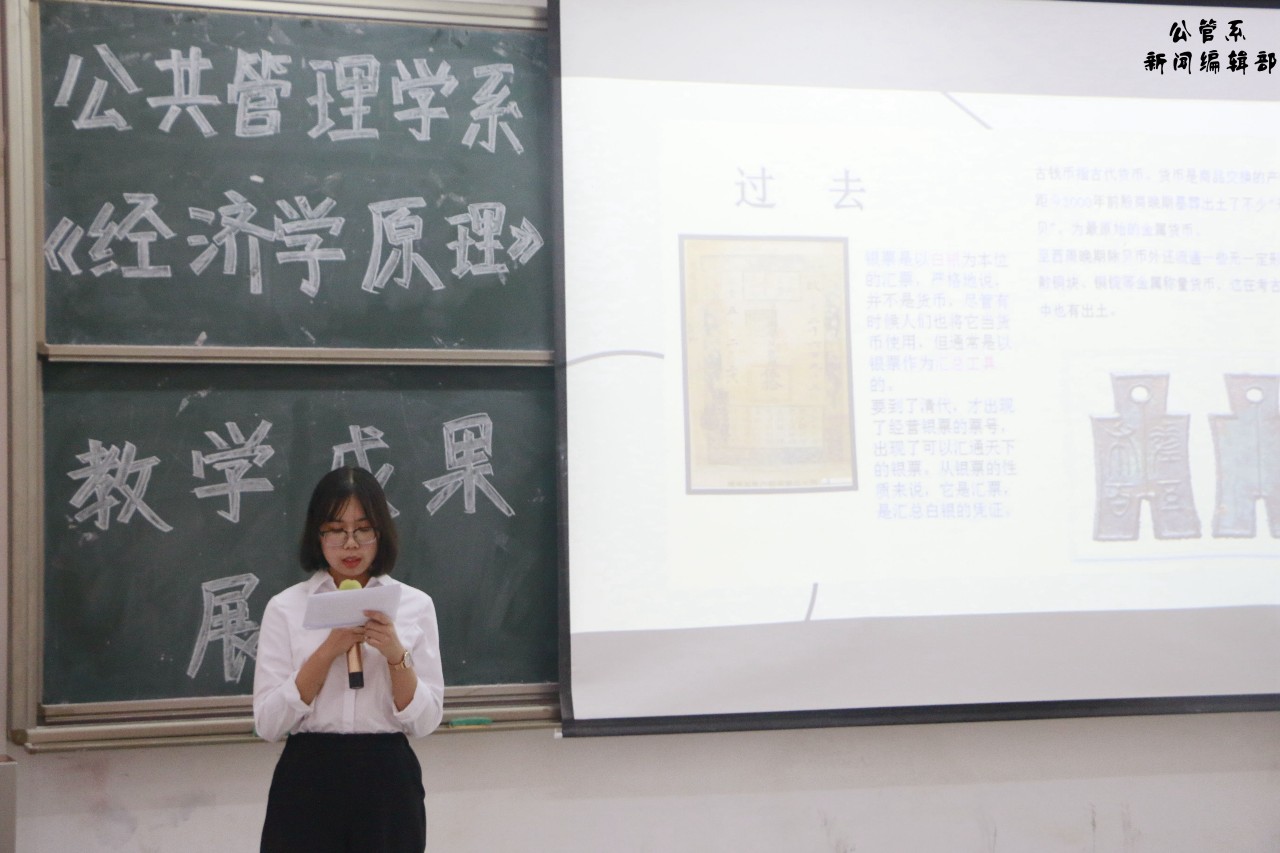 公共管理学系
《经济学原理》
教学成果
展
公管系
新闻编辑部
过去
银票是以白银为本位
的汇票，严格地说，
并不是货币，尽管有
时候人们也将它当货
币使用，但通常是以
银票作为汇兑工具
的。
要到了清代，才出现
了经营银票的票号，
出现了可以汇通天下
的银票，从银票的性
质来说，它是汇票，
是汇总白银的凭证。
古钱币指古代货币，货币是商品交换的产
为最原始的金属货币。
中也有出土。